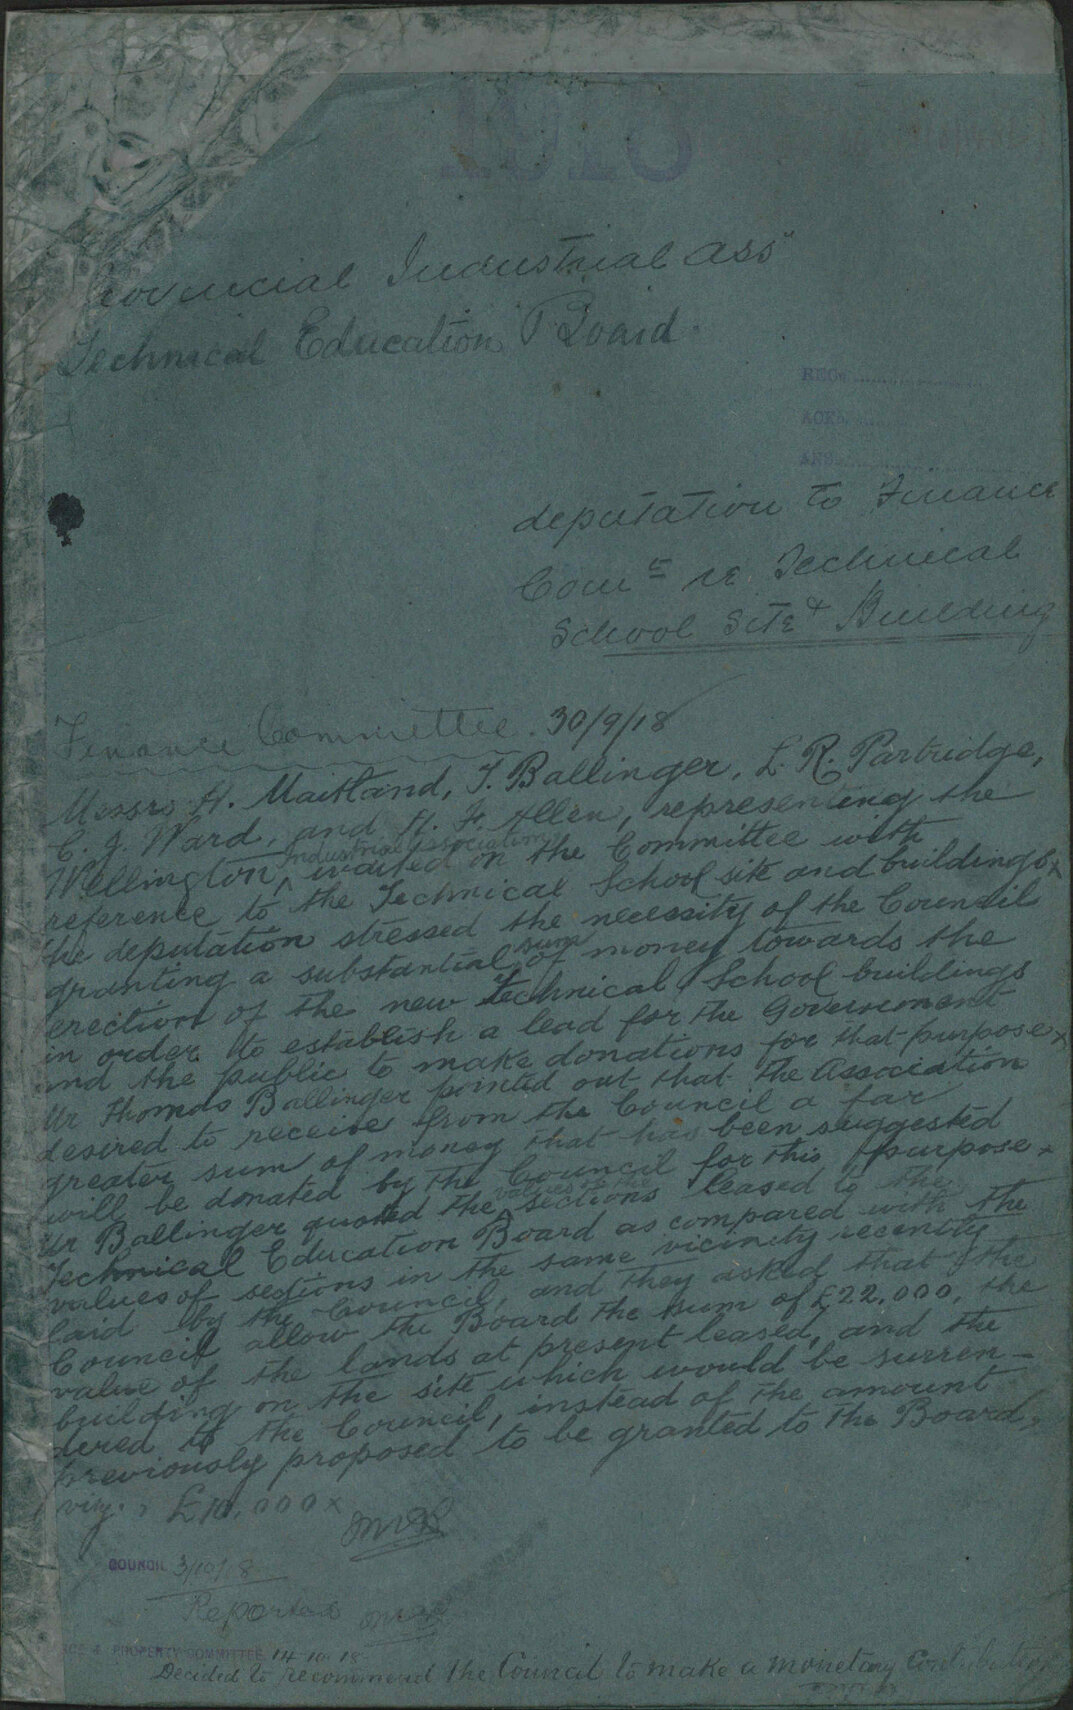 1918
Provincial Industrial Assn
Technical Education Board
RECD.
ACKD.
ANS.
deputation to Finance
Comee re Technical
School Site & Building
Finance Committee. 30/9/18
Messrs A. Maitland, T. Ballinger, L. R. Partridge,
C. J. Ward, and H. F. Allen, representing the
Wellington Industrial Association, waited on the Committee with
reference to the Technical School site and buildings x
the deputation stressed the necessity of the Council
granting a substantial sum of money towards the
erection of the new Technical School buildings
in order to establish a lead for the Government
and the public to make donations for that purpose x
Mr Thomas Ballinger pointed out that the Association
desired to receive from the Council a far
greater sum of money that has been suggested
will be donated by the Council for this purpose x
Mr Ballinger quoted the values of the sections leased to the
Technical Education Board as compared with the
values of sections in the same vicinity recently
laid by the Council, and they asked that the
Council allow the Board the sum of £22.000, the
value of the lands at present leased, and the
building on the site which would be surren-
dered to the Council, instead of the amount
previously proposed to be granted to the Board,
viz., £10,000 x
COUNCIL 3/10/18
Reported
& PROPERTY COMMITTEE 14-10-18
Decided to recommend the Council to make a monetary Contribution